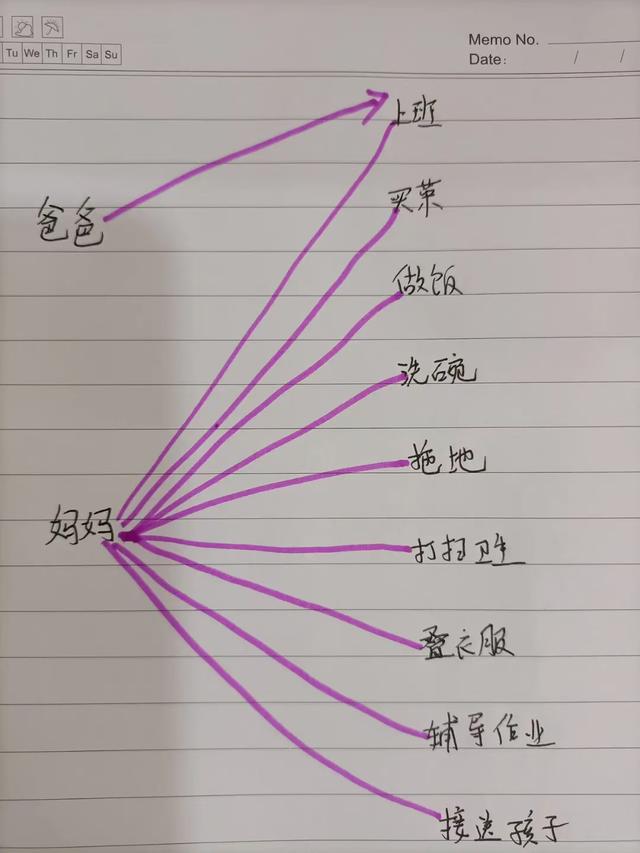 Memo No.
Tu We Th Fr Sa Su
Date: / /
上班
买菜
爸爸
做饭
洗碗
拖地
妈妈
打扫卫生
叠衣服
辅导作业
接送孩子